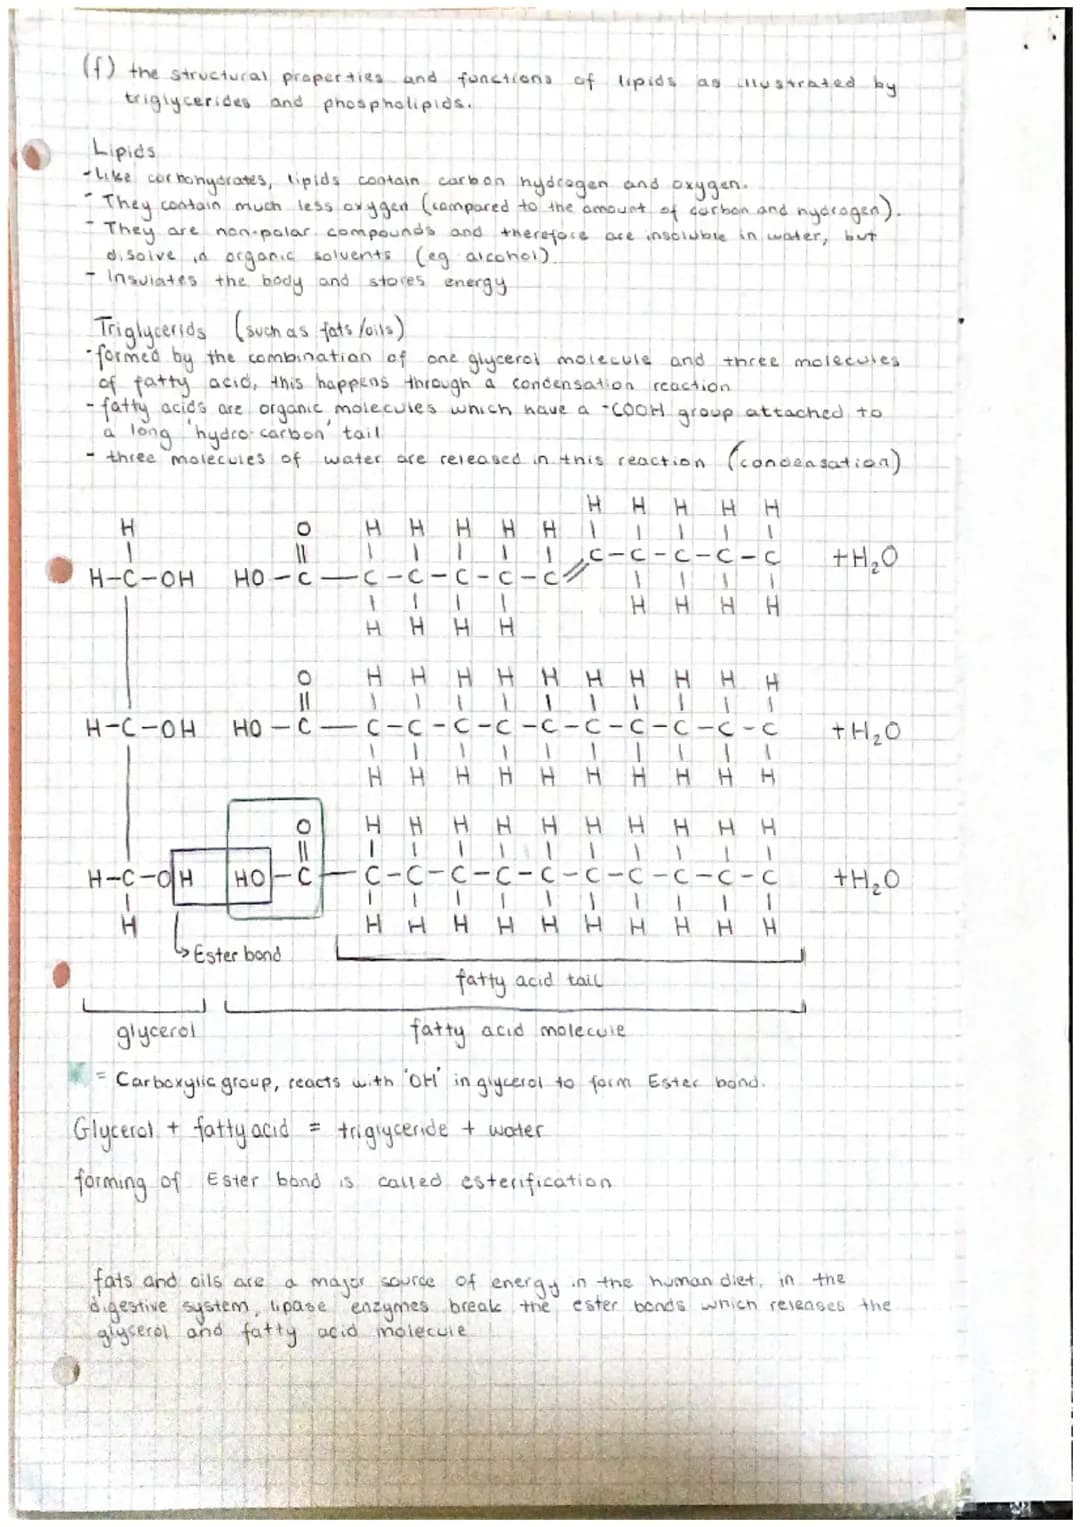 (f) the structural properties and functions of lipids as illustrated by
triglycerides and phospholipids.
Lipids
- Like carbohydrates, lipids contain carbon hydrogen and oxygen.
- They contain much less oxygen (compared to the amount of carbon and hydrogen).
- They are non-polar compounds and therefore are insoluble in water, but
disolve in organic solvents (eg alcohol)
- Insulates the body and stores energy
Triglycerids (such as fats/oils)
- formed by the combination of one glycerol molecule and three molecules
of fatty acid, this happens through a condensation reaction
- fatty acids are organic molecules which have a -COOH group attached to
a long 'hydro-carbon' tail
- three molecules of water are released in this reaction (condensation)
H H H H H
H O H H H H H | | | | |
| || | | | | | C-C-C-C-C +H₂O
H-C-OH HO-C-C-C-C-C-C// | | | |
| | | | | H H H H
H H H H
O H H H H H H H H H H
|| | | | | | | | | | |
H-C-OH HO-C-C-C-C-C-C-C-C-C-C-C +H₂O
| | | | | | | | | |
H H H H H H H H H H
O H H H H H H H H H H
|| | | | | | | | | | |
H-C-OH HO-C-C-C-C-C-C-C-C-C-C-C +H₂O
| | | | | | | | | | |
H H H H H H H H H H H
Ester bond
fatty acid tail
glycerol fatty acid molecule
= Carboxylic group, reacts with 'OH' in glycerol to form Ester bond.
Glycerol + fatty acid = triglyceride + water
forming of Ester bond is called esterification
fats and oils are a major source of energy in the human diet, in the
digestive system, lipase enzymes break the ester bonds which releases the
glycerol and fatty acid molecule